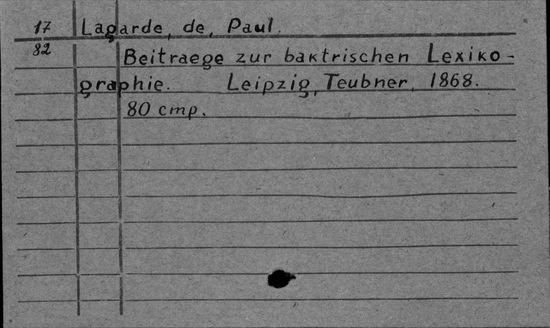 17 Lagarde, de, Paul.
82 Beitraege zur baktrischen Lexiko-
graphie. Leipzig, Teubner, 1868.
80 стр.